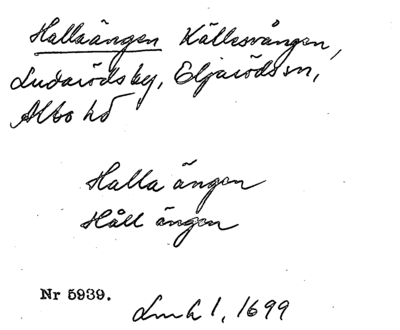 Hallaängen Källesvången,
Ludaröds by, Eljaröds sn,
Albo hd
Halla ängen
Håll ängen
Nr 5939.
Lmh 1, 1699